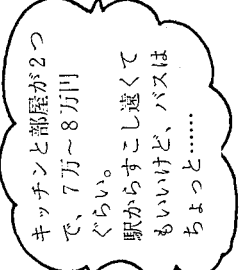 キッチンと部屋が2つ
で、7万～8万円
ぐらい。
駅からすこし遠くて
もいいけど、バスは
ちょっと……